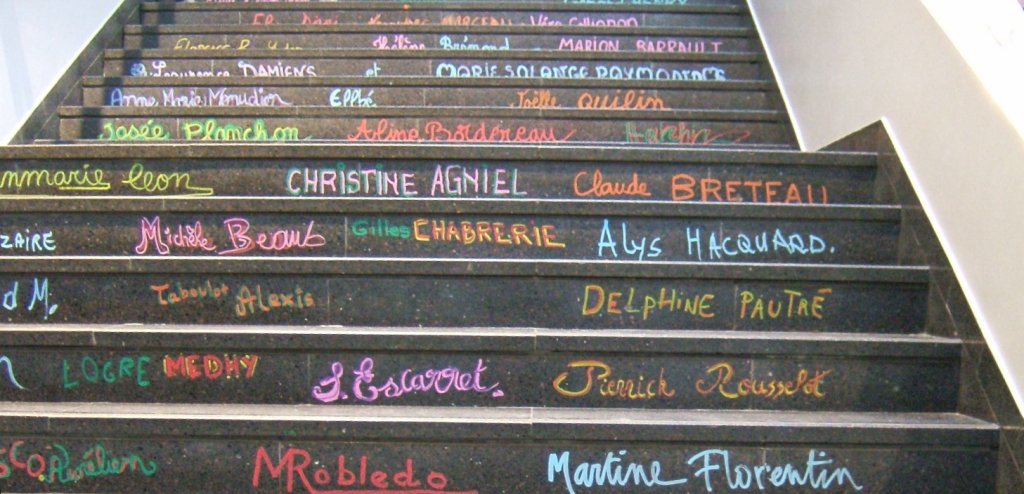 MARCEAU
Hélène Brémond MARION BARRAULT
Laurence DAMIENS et MARIE SOLANGE RAYMONDENCS
Anne Marie Menudier Effbé Joëlle QUILIN
Josée Planchon Aline Bordereau
nmarie leon CHRISTINE AGNIEL Claude BRETEAU
ZAIRE Michèle Beaub Gilles CHABRERIE Alys HACQUARD.
d M. Taboulot Alexis DELPHINE PAUTRÉ
LOGRE MEDHY S. Escarret. Pierrick Rousselot
SCO Aurélien MRobledo Martine Florentin